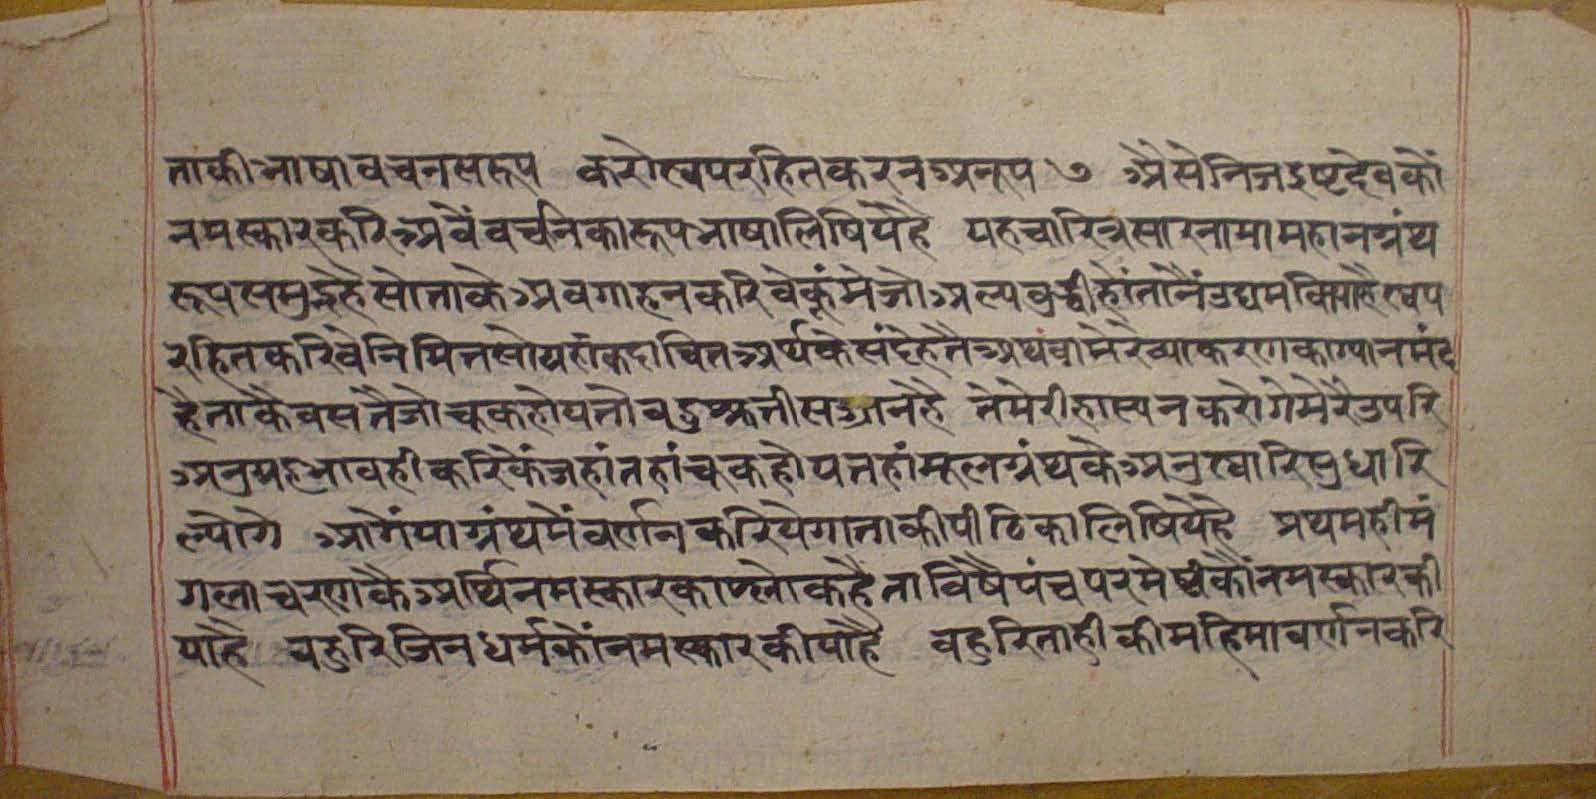 ताकी भाषा वचन सरूप करो स्वपरहित करन अनूप ७ अैसे निज इष्ट देव कों
नमस्कार करि अवें वर्चनिका रूप भाषा लिषियेहै यह चारित्रसार नामा महान ग्रंथ
रूप समुद्र है सो ताके अवगाहन करिवेकूं मे जो अल्पवुद्धी हों तानैं उद्यम कियाहै स्वप
रहित करिवे निमित्त सो यहां कदाचित अर्थके संदेहतै अथवा मेरै व्याकरण का ग्यान मंद
है ताकै वसतै जो चूक होय तो वहु श्रुती सज्जन है ते मेरी हास्य न करोगे मेरै उपरि
अनुग्रह भावही करिकें जहां तहां चूक होय तहां मूल ग्रंथके अनुस्वारि सुधारि
ल्योगे आगें या ग्रंथमें वर्णन करियेगा ताकी पीठिका लिषियेहै प्रथमही मं
गलाचरणकै अर्थि नमस्कार का श्लोकहै ता विषै पंच परमेष्टीकों नमस्कार की
याहै वहुरि जिनधर्मकों नमस्कार कीयाहै वहुरि ताही की महिमा वर्णन करि